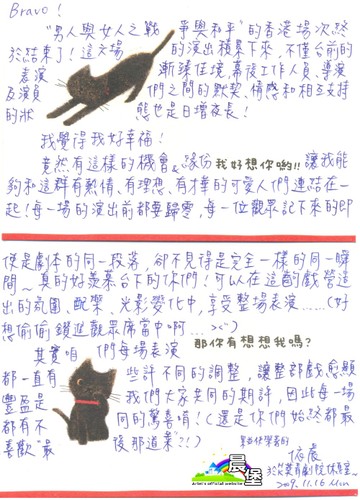 Bravo!
"男人與女人之戰 爭與和平"的香港場次終
於結束了!這六場 的演出積累下來,不僅台前的
表演 漸臻佳境,幕後工作人員、導演
及演員 們之間的默契、情感和相互支持
的狀 態也是日增夜長!
我覺得我好幸福!
竟然有這樣的機會&緣份 我好想你喲!! 讓我能
夠和這群有熱情、有理想、有才華的可愛人們連結在一
起!每一場的演出前都要歸零,每一位觀眾記下來的即
使是劇本的同一段落,卻不見得是完全一樣的同一瞬
間~真的好羨慕台下的你們!可以在這齣戲營造
出的氛圍、配樂、光影變化中,享受整場表演......(好
想偷偷鑽進觀眾席當中啊...><)
那你有想想我嗎?
其實咱 們每場表演
都一直有 些許不同的調整,讓整部戲愈顯
豐盈是 我們大家共同的期許,因此每一場
都有不 同的驚喜唷!(還是你們始終都最
喜歡"最 後那道菜"?!)
依晨
2009.11.16 Mon
晨堡
Ariel's official website